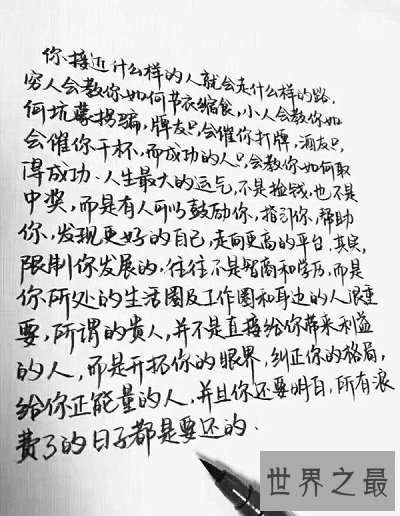 你接近什么样的人就会走什么样的路,
穷人会教你如何节衣缩食,小人会教你如
何坑蒙拐骗,牌友只会催你打牌,酒友只
会催你干杯,而成功的人只会教你如何取
得成功.人生最大的运气,不是捡钱,也不是
中奖,而是有人可以鼓励你,指引你,帮助
你,发现更好的自己,走向更高的平台.其实,
限制你发展的,往往不是智商和学历,而是
你所处的生活圈及工作圈和身边的人很重
要,所谓的贵人,并不是直接给你带来利益
的人,而是开拓你的眼界,纠正你的格局,
给你正能量的人.并且你还要明白,所有浪
费了的日子都是要还的.
世界之最